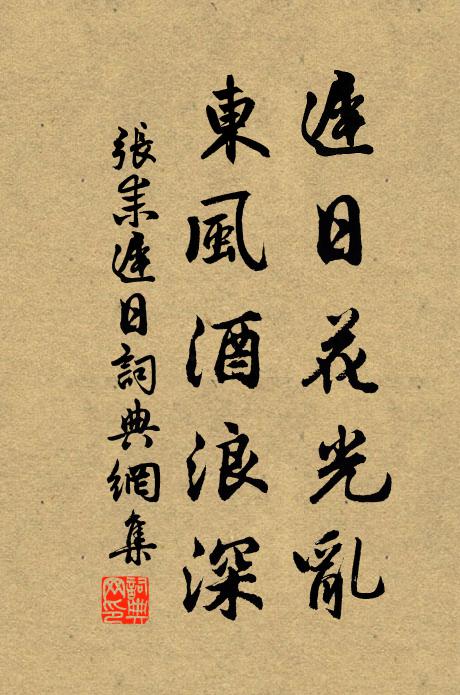 遲日花光亂
東風酒浪深
張耒遲日詞典網集
詞典网印